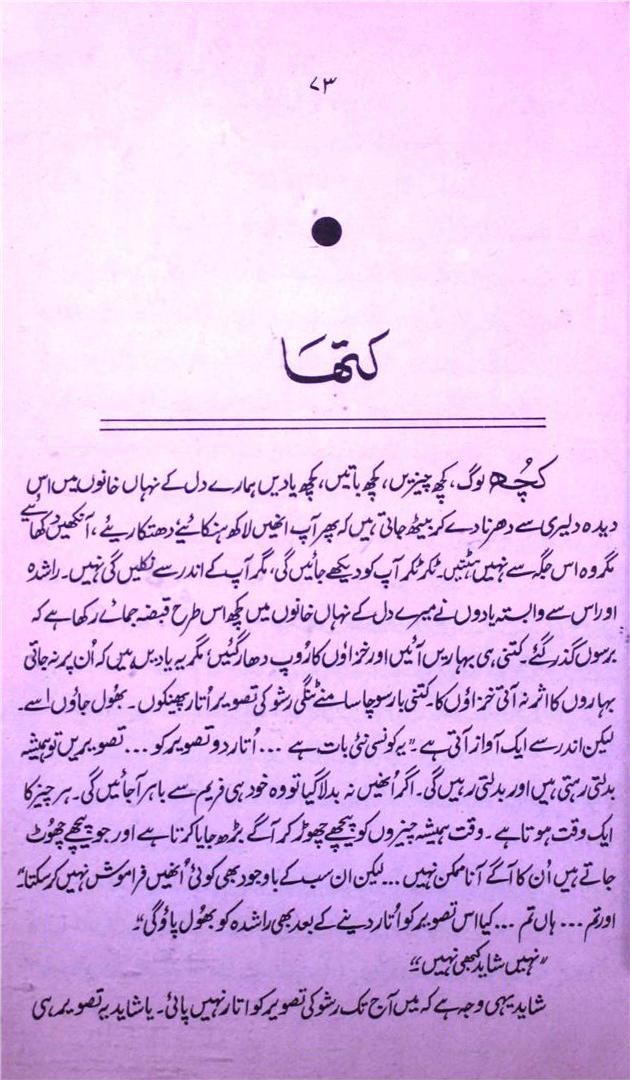 ۷۳
کتھا
کچھ لوگ، کچھ چیزیں، کچھ باتیں، کچھ یادیں ہمارے دل کے نہاں خانوں میں اس
دیدہ دلیری سے دھرنا دے کر بیٹھ جاتی ہیں کہ پھر آپ انھیں لاکھ ہنکائیے دھتکاریئے، آنکھیں دکھائیے
مگر وہ اس جگہ سے نہیں ہٹتیں۔ ٹکر ٹکر آپ کو دیکھے جائیں گی، مگر آپ کے اندر سے نکلیں گی نہیں۔ راشدہ
اور اس سے وابستہ یادوں نے میرے دل کے نہاں خانوں میں کچھ اس طرح قبضہ جمائے رکھا ہے کہ
برسوں گذر گئے۔ کتنی ہی بہاریں آئیں اور خزاؤں کا رُوپ دھار گئیں مگر یہ یادیں ہیں کہ اُن پر نہ جاتی
بہاروں کا اثر نہ آتی خزاؤں کا۔ کتنی بار سوچا سامنے ٹنگی رشو کی تصویر اُتار پھینکوں۔ بھُول جاؤں اسے۔
لیکن اندر سے ایک آواز آتی ہے۔ "یہ کونسی نئی بات ہے ... اُتار دو تصویر کو ... تصویریں تو ہمیشہ
بدلتی رہتی ہیں اور بدلتی رہیں گی۔ اگر اُنھیں نہ بدلا گیا تو وہ خود ہی فریم سے باہر آجائیں گی۔ ہر چیز کا
ایک وقت ہوتا ہے۔ وقت ہمیشہ چیزوں کو پیچھے چھوڑ کر آگے بڑھ جایا کرتا ہے اور جو پیچھے چھُوٹ
جاتے ہیں اُن کا آگے آنا ممکن نہیں ... لیکن ان سب کے باوجود بھی کوئی اُنھیں فراموش نہیں کر سکتا۔"
اور تم ... ہاں تم ... کیا اس تصویر کو اُتار دینے کے بعد بھی راشدہ کو بھُول پاؤگی"۔
"نہیں شاید کبھی نہیں"۔
شاید یہی وجہ ہے کہ میں آج تک رشو کی تصویر کو اتار نہیں پائی۔ یا شاید یہ تصویر ہی